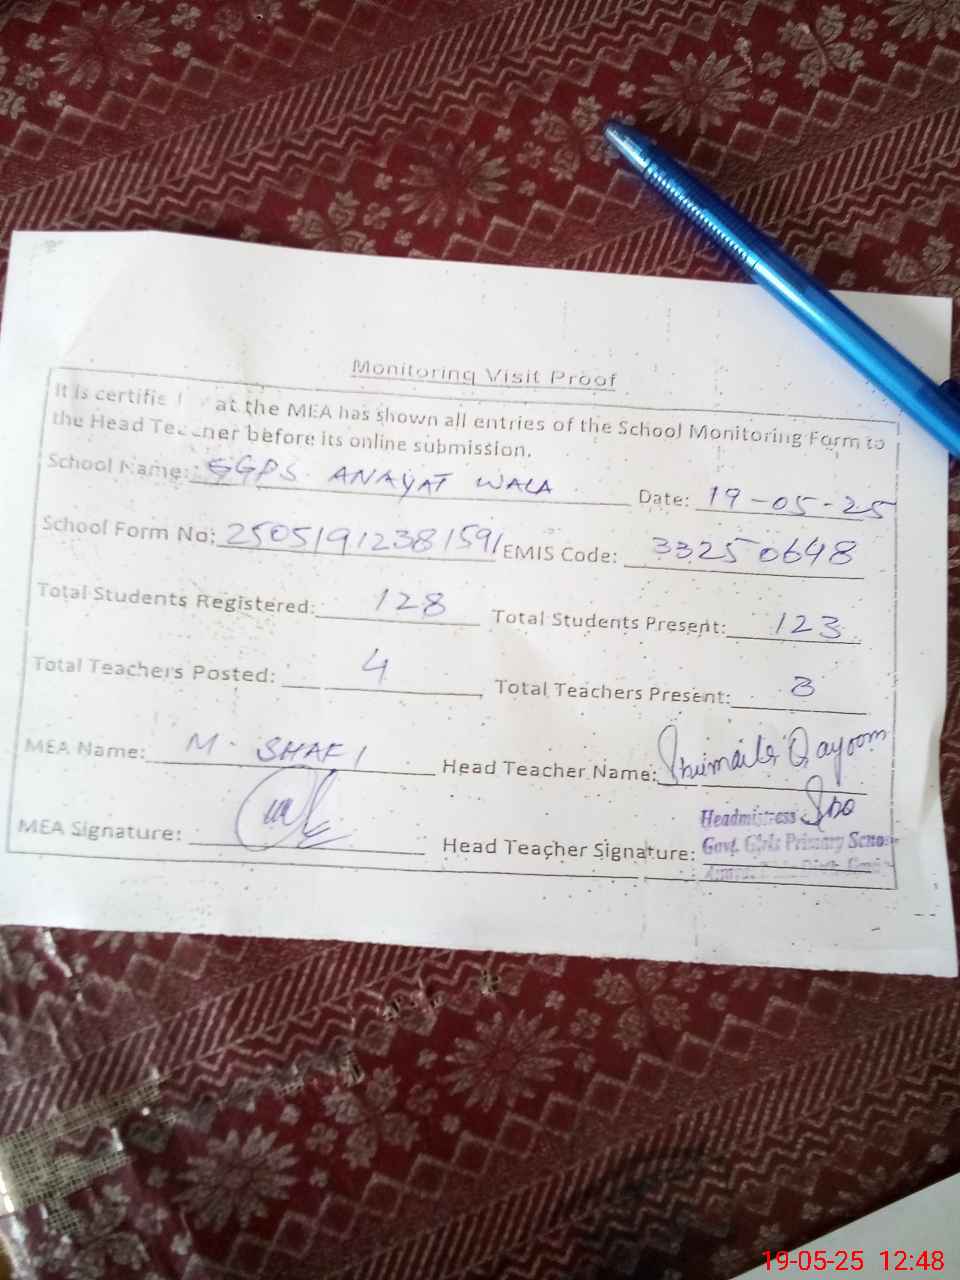 Monitoring Visit Proof
It is certifie at the MEA has shown all entries of the School Monitoring Form to
the Head Teacher before its online submission.
School Name: GGPS ANAYAT WALA Date: 19-05-25
School Form No: 25051912381591 EMIS Code: 33250648
Total Students Registered: 128 Total Students Present: 123
Total Teachers Posted: 4 Total Teachers Present: 3
MEA Name: M. SHAFI Head Teacher Name: Shumaila Qayoom
MEA Signature: Head Teacher Signature:
Headmistress
Govt. Girls Primary Schoo
19-05-25 12:48